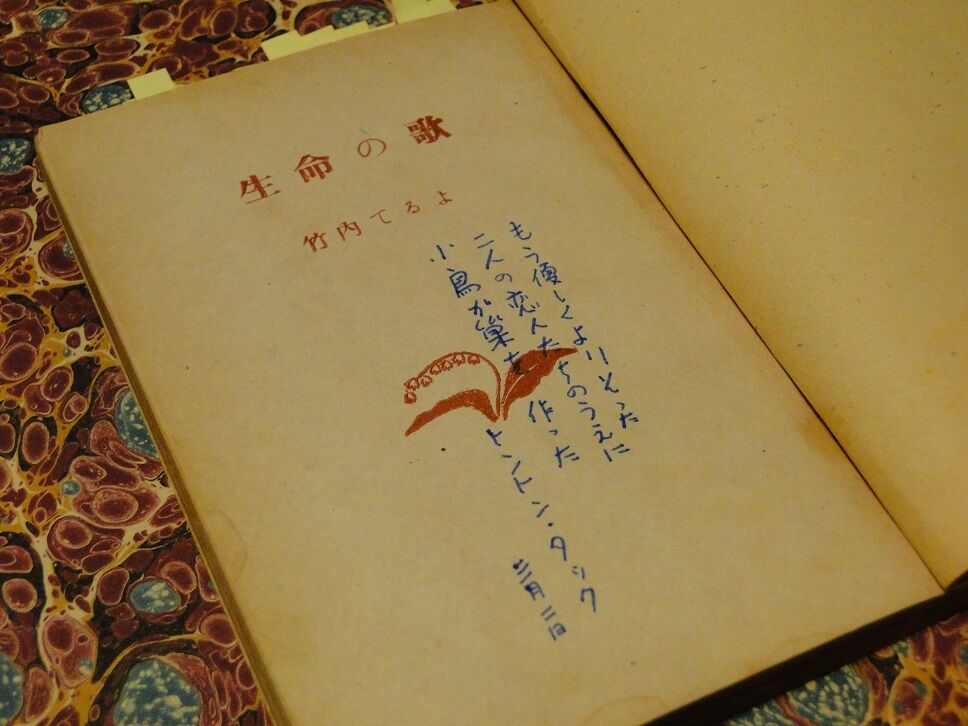 生命の歌
竹内てるよ
もう優しくよりそった
二人の恋人たちのうえに
小鳥が巣を作った
トントン・タック
三月二日